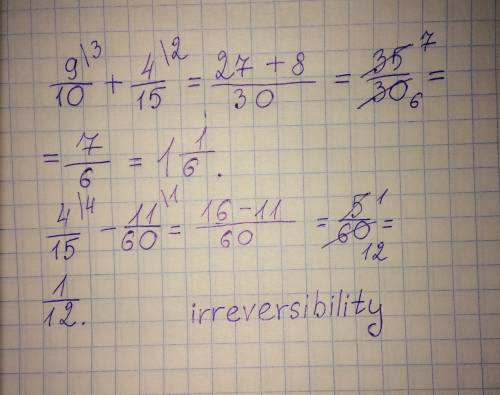 9\3/10 + 4\2/15 = 27 + 8/30 = 35 7/30 6 =
= 7/6 = 1 1/6.
4\4/15 - 11\1/60 = 16 - 11/60 = 5 1/60 12 =
1/12. irreversibility